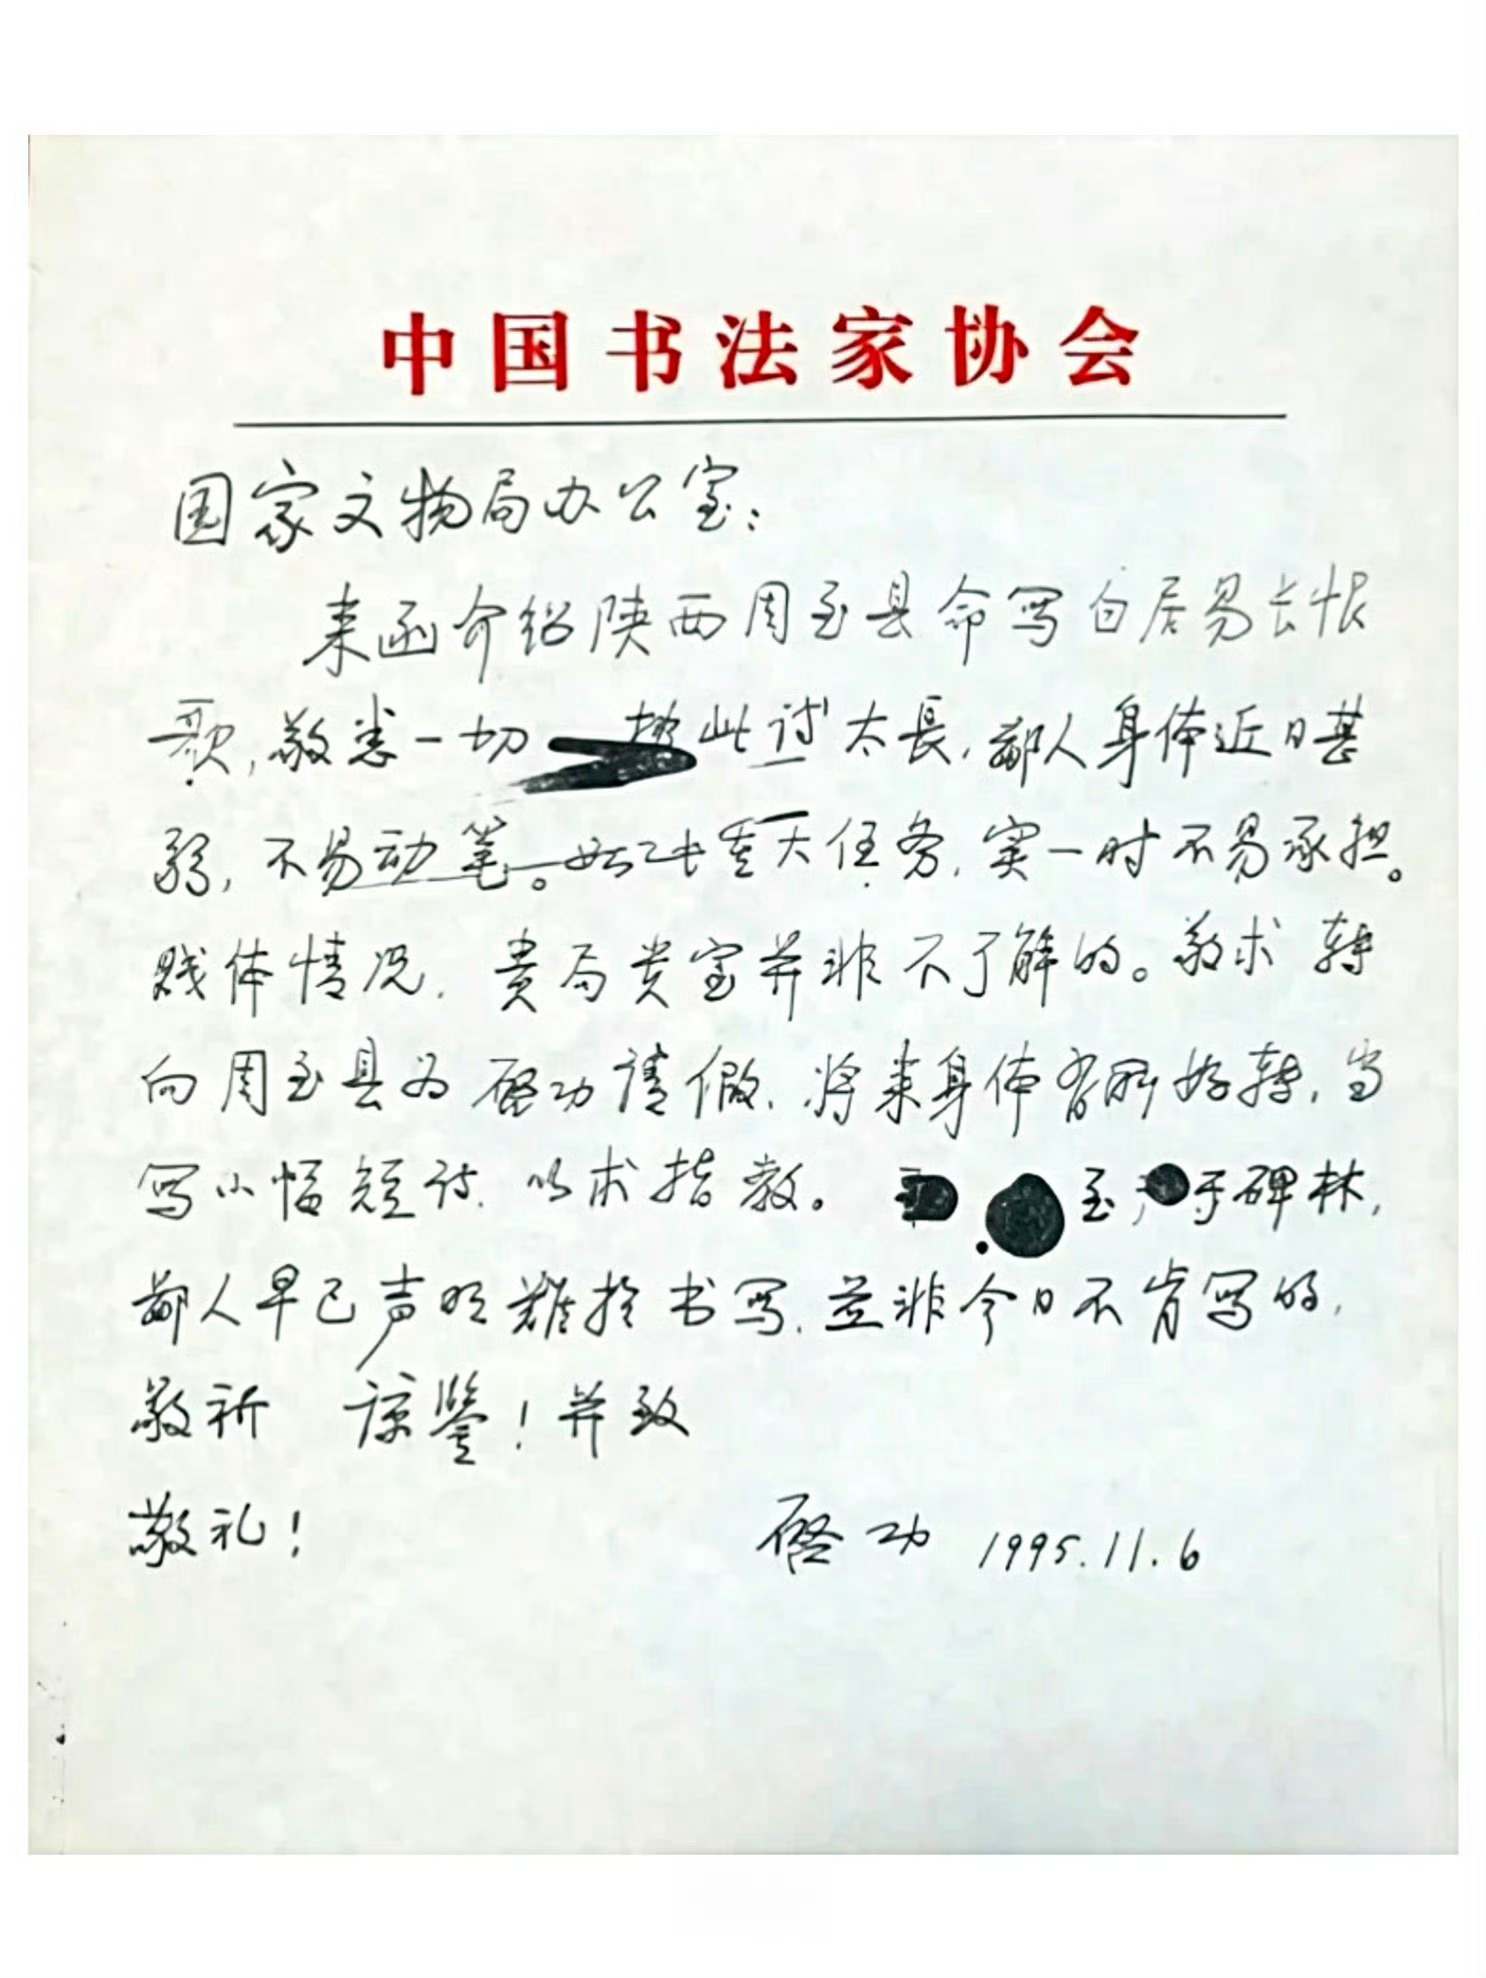 中国书法家协会
国家文物局办公室：
来函介绍陕西周至县命写白居易长恨
歌，敬悉一切 此诗太長，鄙人身体近日甚
弱，不易动笔。如此重大任务，实一时不易承担。
贱体情况，贵局贵室并非不了解的。敬求 转
向周至县为 启功请假，将来身体有所好转，当
写小幅短诗，以求指教。 至于碑林，
鄙人早已声明难于书写，並非今日不肯写的，
敬祈 谅鉴！并致
敬礼！ 启功 1995.11.6